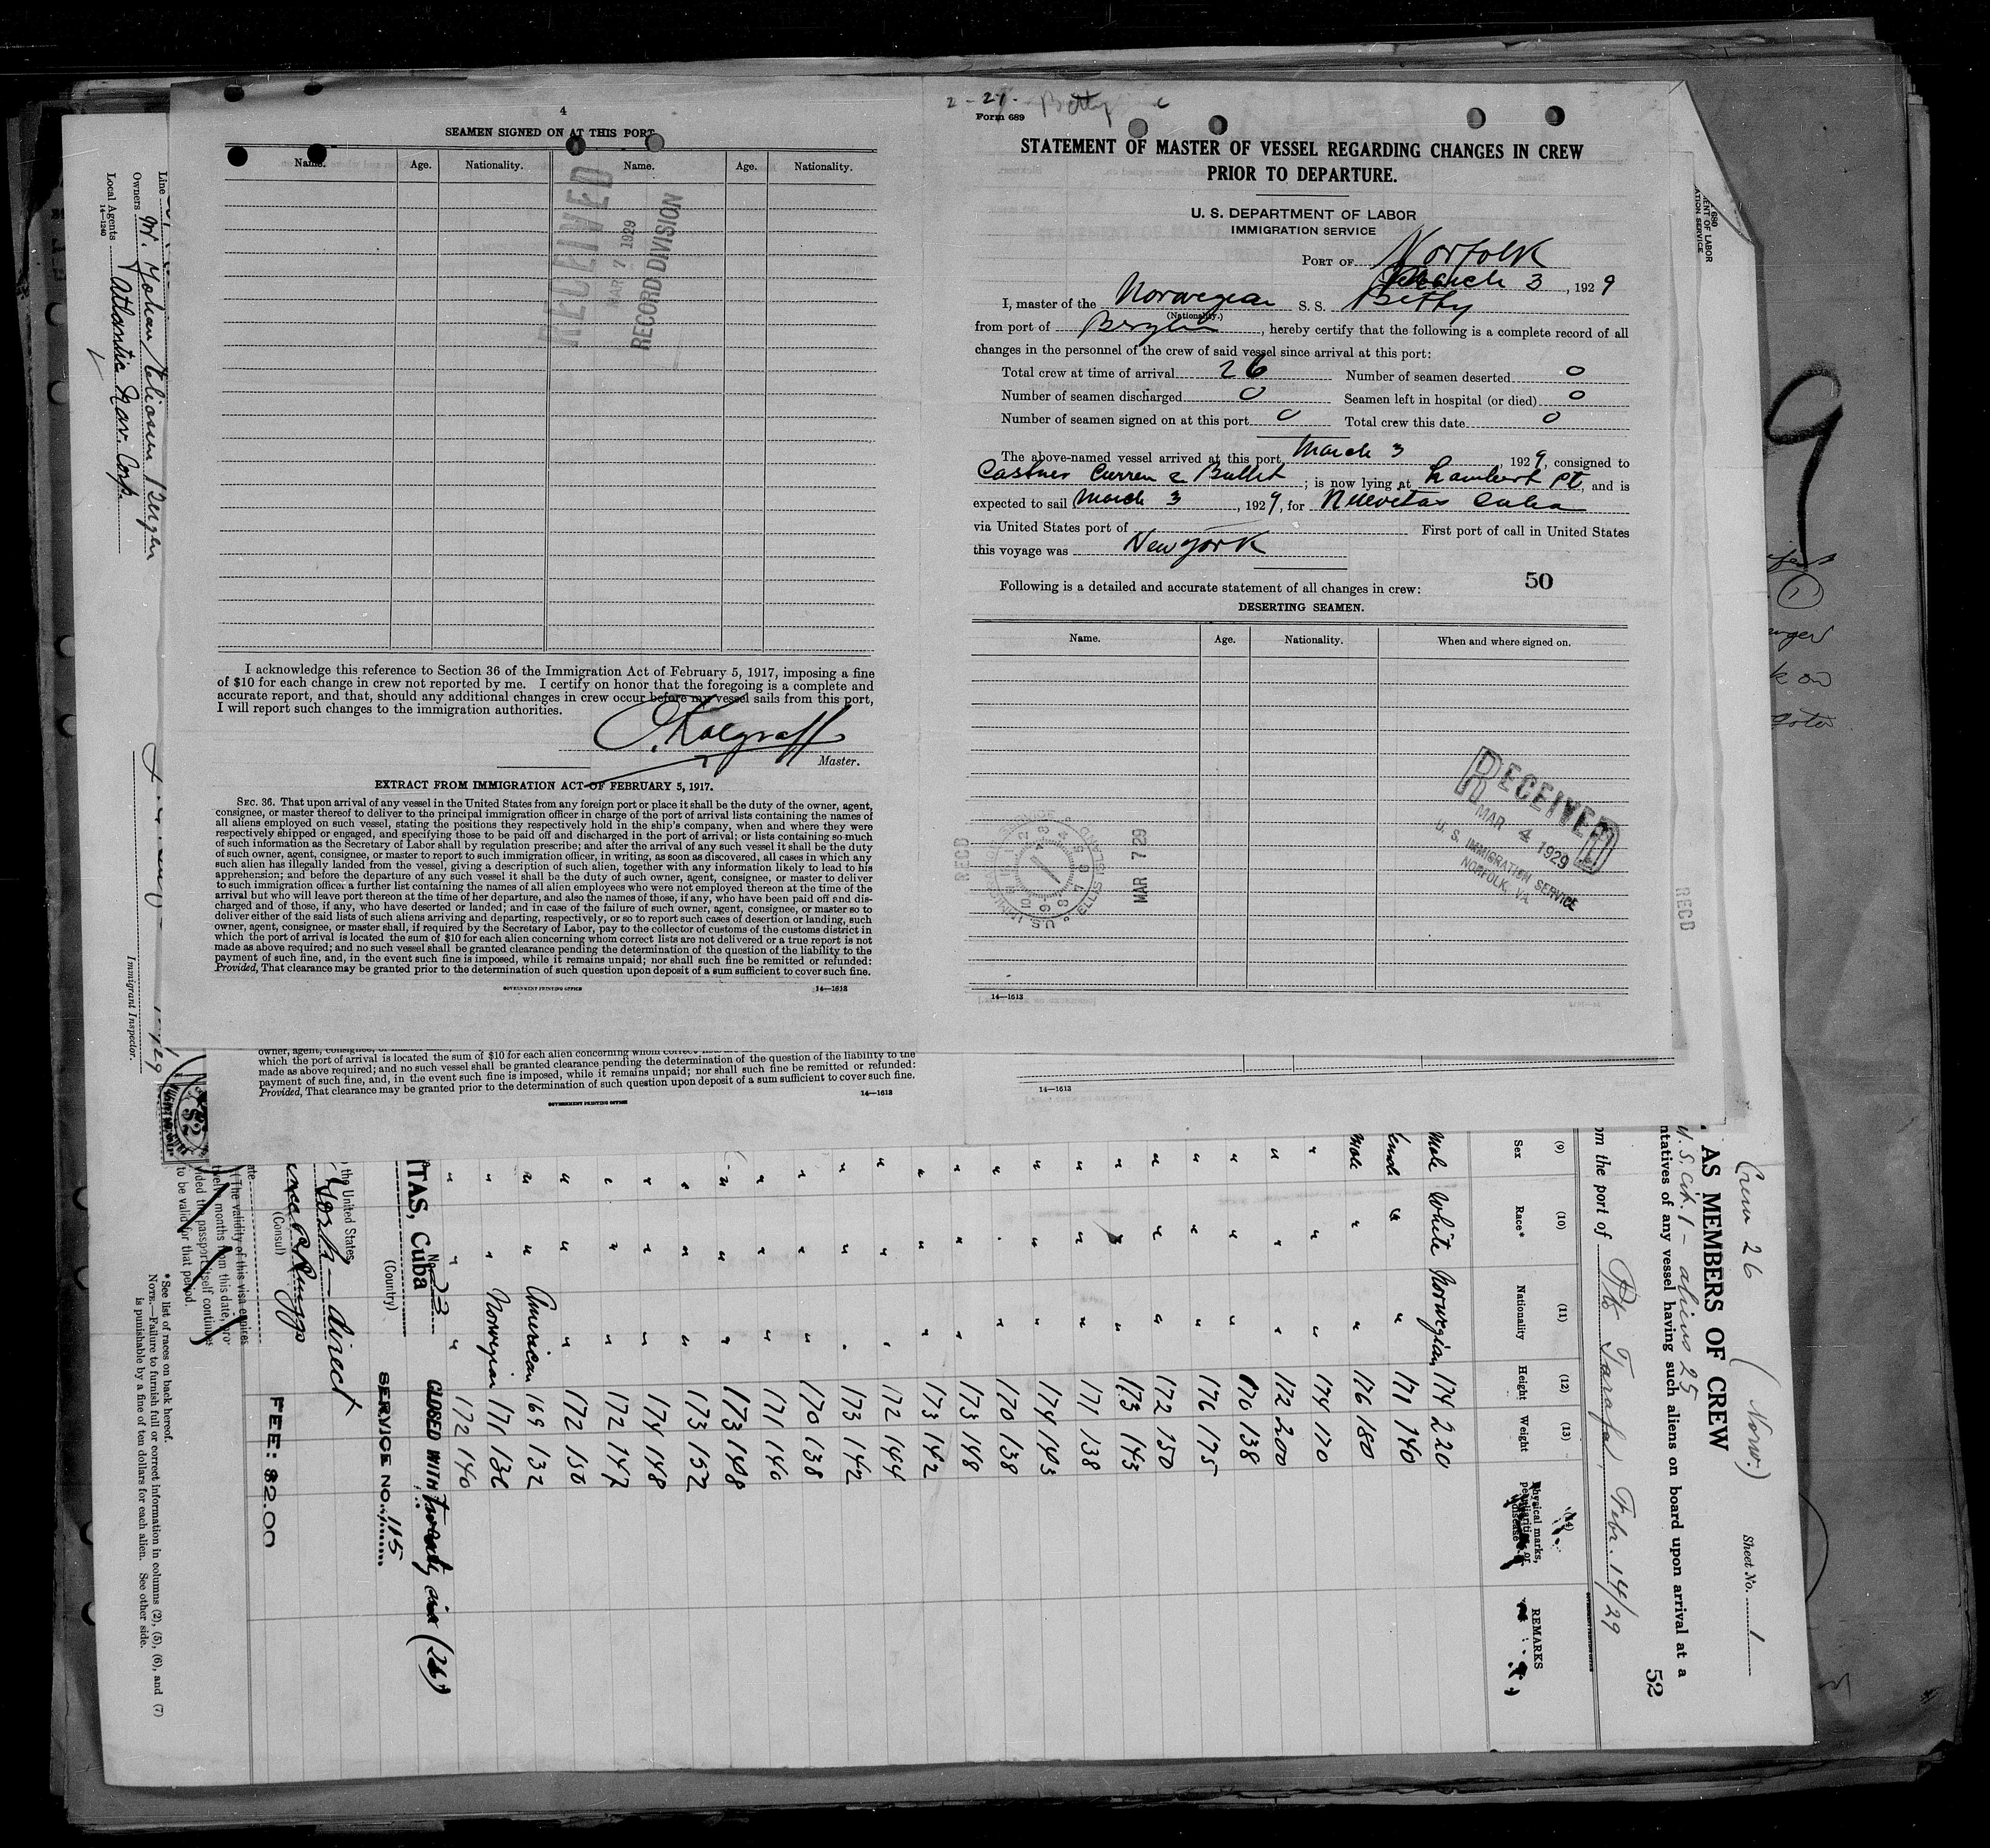 4
SEAMEN SIGNED ON AT THIS PORT
Name. Age. Nationality. Name. Age. Nationality.
RECEIVED
MAR 7 1929
RECORD DIVISION
I acknowledge this reference to Section 36 of the Immigration Act of February 5, 1917, imposing a fine
of $10 for each change in crew not reported by me. I certify on honor that the foregoing is a complete and
accurate report, and that, should any additional changes in crew occur before my vessel sails from this port,
I will report such changes to the immigration authorities.
Master.
EXTRACT FROM IMMIGRATION ACT OF FEBRUARY 5, 1917.
SEC. 36. That upon arrival of any vessel in the United States from any foreign port or place it shall be the duty of the owner, agent,
consignee, or master thereof to deliver to the principal immigration officer in charge of the port of arrival lists containing the names of
all aliens employed on such vessel, stating the positions they respectively hold in the ship's company, when and where they were
respectively shipped or engaged, and specifying those to be paid off and discharged in the port of arrival; or lists containing so much
of such information as the Secretary of Labor shall by regulation prescribe; and after the arrival of any such vessel it shall be the duty
of such owner, agent, consignee, or master to report to such immigration officer, in writing, as soon as discovered, all cases in which any
such alien has illegally landed from the vessel, giving a description of such alien, together with any information likely to lead to his
apprehension; and before the departure of any such vessel it shall be the duty of such owner, agent, consignee, or master to deliver
to such immigration officer a further list containing the names of all alien employees who were not employed thereon at the time of the
arrival but who will leave port thereon at the time of her departure, and also the names of those, if any, who have been paid off and dis-
charged and of those, if any, who have deserted or landed; and in case of the failure of such owner, agent, consignee, or master so to
deliver either of the said lists of such aliens arriving and departing, respectively, or so to report such cases of desertion or landing, such
owner, agent, consignee, or master shall, if required by the Secretary of Labor, pay to the collector of customs of the customs district in
which the port of arrival is located the sum of $10 for each alien concerning whom correct lists are not delivered or a true report is not
made as above required; and no such vessel shall be granted clearance pending the determination of the question of the liability to the
payment of such fine, and, in the event such fine is imposed, while it remains unpaid; nor shall such fine be remitted or refunded:
Provided, That clearance may be granted prior to the determination of such question upon deposit of a sum sufficient to cover such fine.
GOVERNMENT PRINTING OFFICE 14—1613
2-27- Betty
Form 689
STATEMENT OF MASTER OF VESSEL REGARDING CHANGES IN CREW
PRIOR TO DEPARTURE.
U. S. DEPARTMENT OF LABOR
IMMIGRATION SERVICE
PORT OF Norfolk
March 3, 1929
I, master of the Norwegian S. S. Betty
(Nationality.)
from port of Bergen, hereby certify that the following is a complete record of all
changes in the personnel of the crew of said vessel since arrival at this port:
Total crew at time of arrival 26 Number of seamen deserted 0
Number of seamen discharged 0 Seamen left in hospital (or died) 0
Number of seamen signed on at this port 0 Total crew this date 0
The above-named vessel arrived at this port March 3, 1929, consigned to
Castner Curren & Bullet; is now lying at Lambert Pt, and is
expected to sail March 3, 1929, for Nuevitas Cuba
via United States port of First port of call in United States
this voyage was New York
Following is a detailed and accurate statement of all changes in crew: 50
DESERTING SEAMEN.
Name. Age. Nationality. When and where signed on.
RECEIVED
MAR 4 1929
U. S. IMMIGRATION SERVICE
NORFOLK, VA
RECD
MAR 7 29
RECD
14—1613
owner, agent, consignee,
which the port of arrival is located the sum of $10 for each alien concerning whom correct
made as above required; and no such vessel shall be granted clearance pending the determination of the question of the liability to the
payment of such fine, and, in the event such fine is imposed, while it remains unpaid; nor shall such fine be remitted or refunded:
Provided, That clearance may be granted prior to the determination of such question upon deposit of a sum sufficient to cover such fine.
GOVERNMENT PRINTING OFFICE 14—1613
14—1613
Line
Owners
Local Agents Atlantic Nav. Corp.
14—1240
Immigrant Inspector.
Crew 26 (Norw.) Sheet No. 1
AS MEMBERS OF CREW
U.S. cit. 1 - aliens 25
ntatives of any vessel having such aliens on board upon arrival at a
52
om the port of Pto Tarafa, Febr. 14/29
(9) (10) (11) (12) (13) (14)
Sex Race* Nationality Height Weight Physical marks, peculiarities, or disease REMARKS
Male White Norwegian 174 220
" " 171 140
Male " " 176 180
" " " 174 170
" " " 172 200
" " " 170 138
" " " 176 175
" " " 172 150
" " " 173 143
" " " 171 138
" " " 174 143
" " " 170 138
" " " 173 148
" " " 173 142
" " " 172 144
" " " 173 142
" " " 170 138
" " " 171 140
" " " 173 148
" " " 173 152
" " " 174 148
" " " 172 147
" " " 172 150
" " American 169 132
" " Norwegian 171 136
" " " 172 140
TAS, Cuba CLOSED WITH Twenty six (26)
No. 23
(Country) SERVICE NO. 115
the United States
York - direct
(Consul) FEE: $2.00
The validity of this visa expires
twelve months from this date, pro-
vided the passport itself continues
to be valid for that period.
*See list of races on back hereof.
NOTE.—Failure to furnish full or correct information in columns (2), (5), (6), and (7)
is punishable by a fine of ten dollars for each alien. See other side.